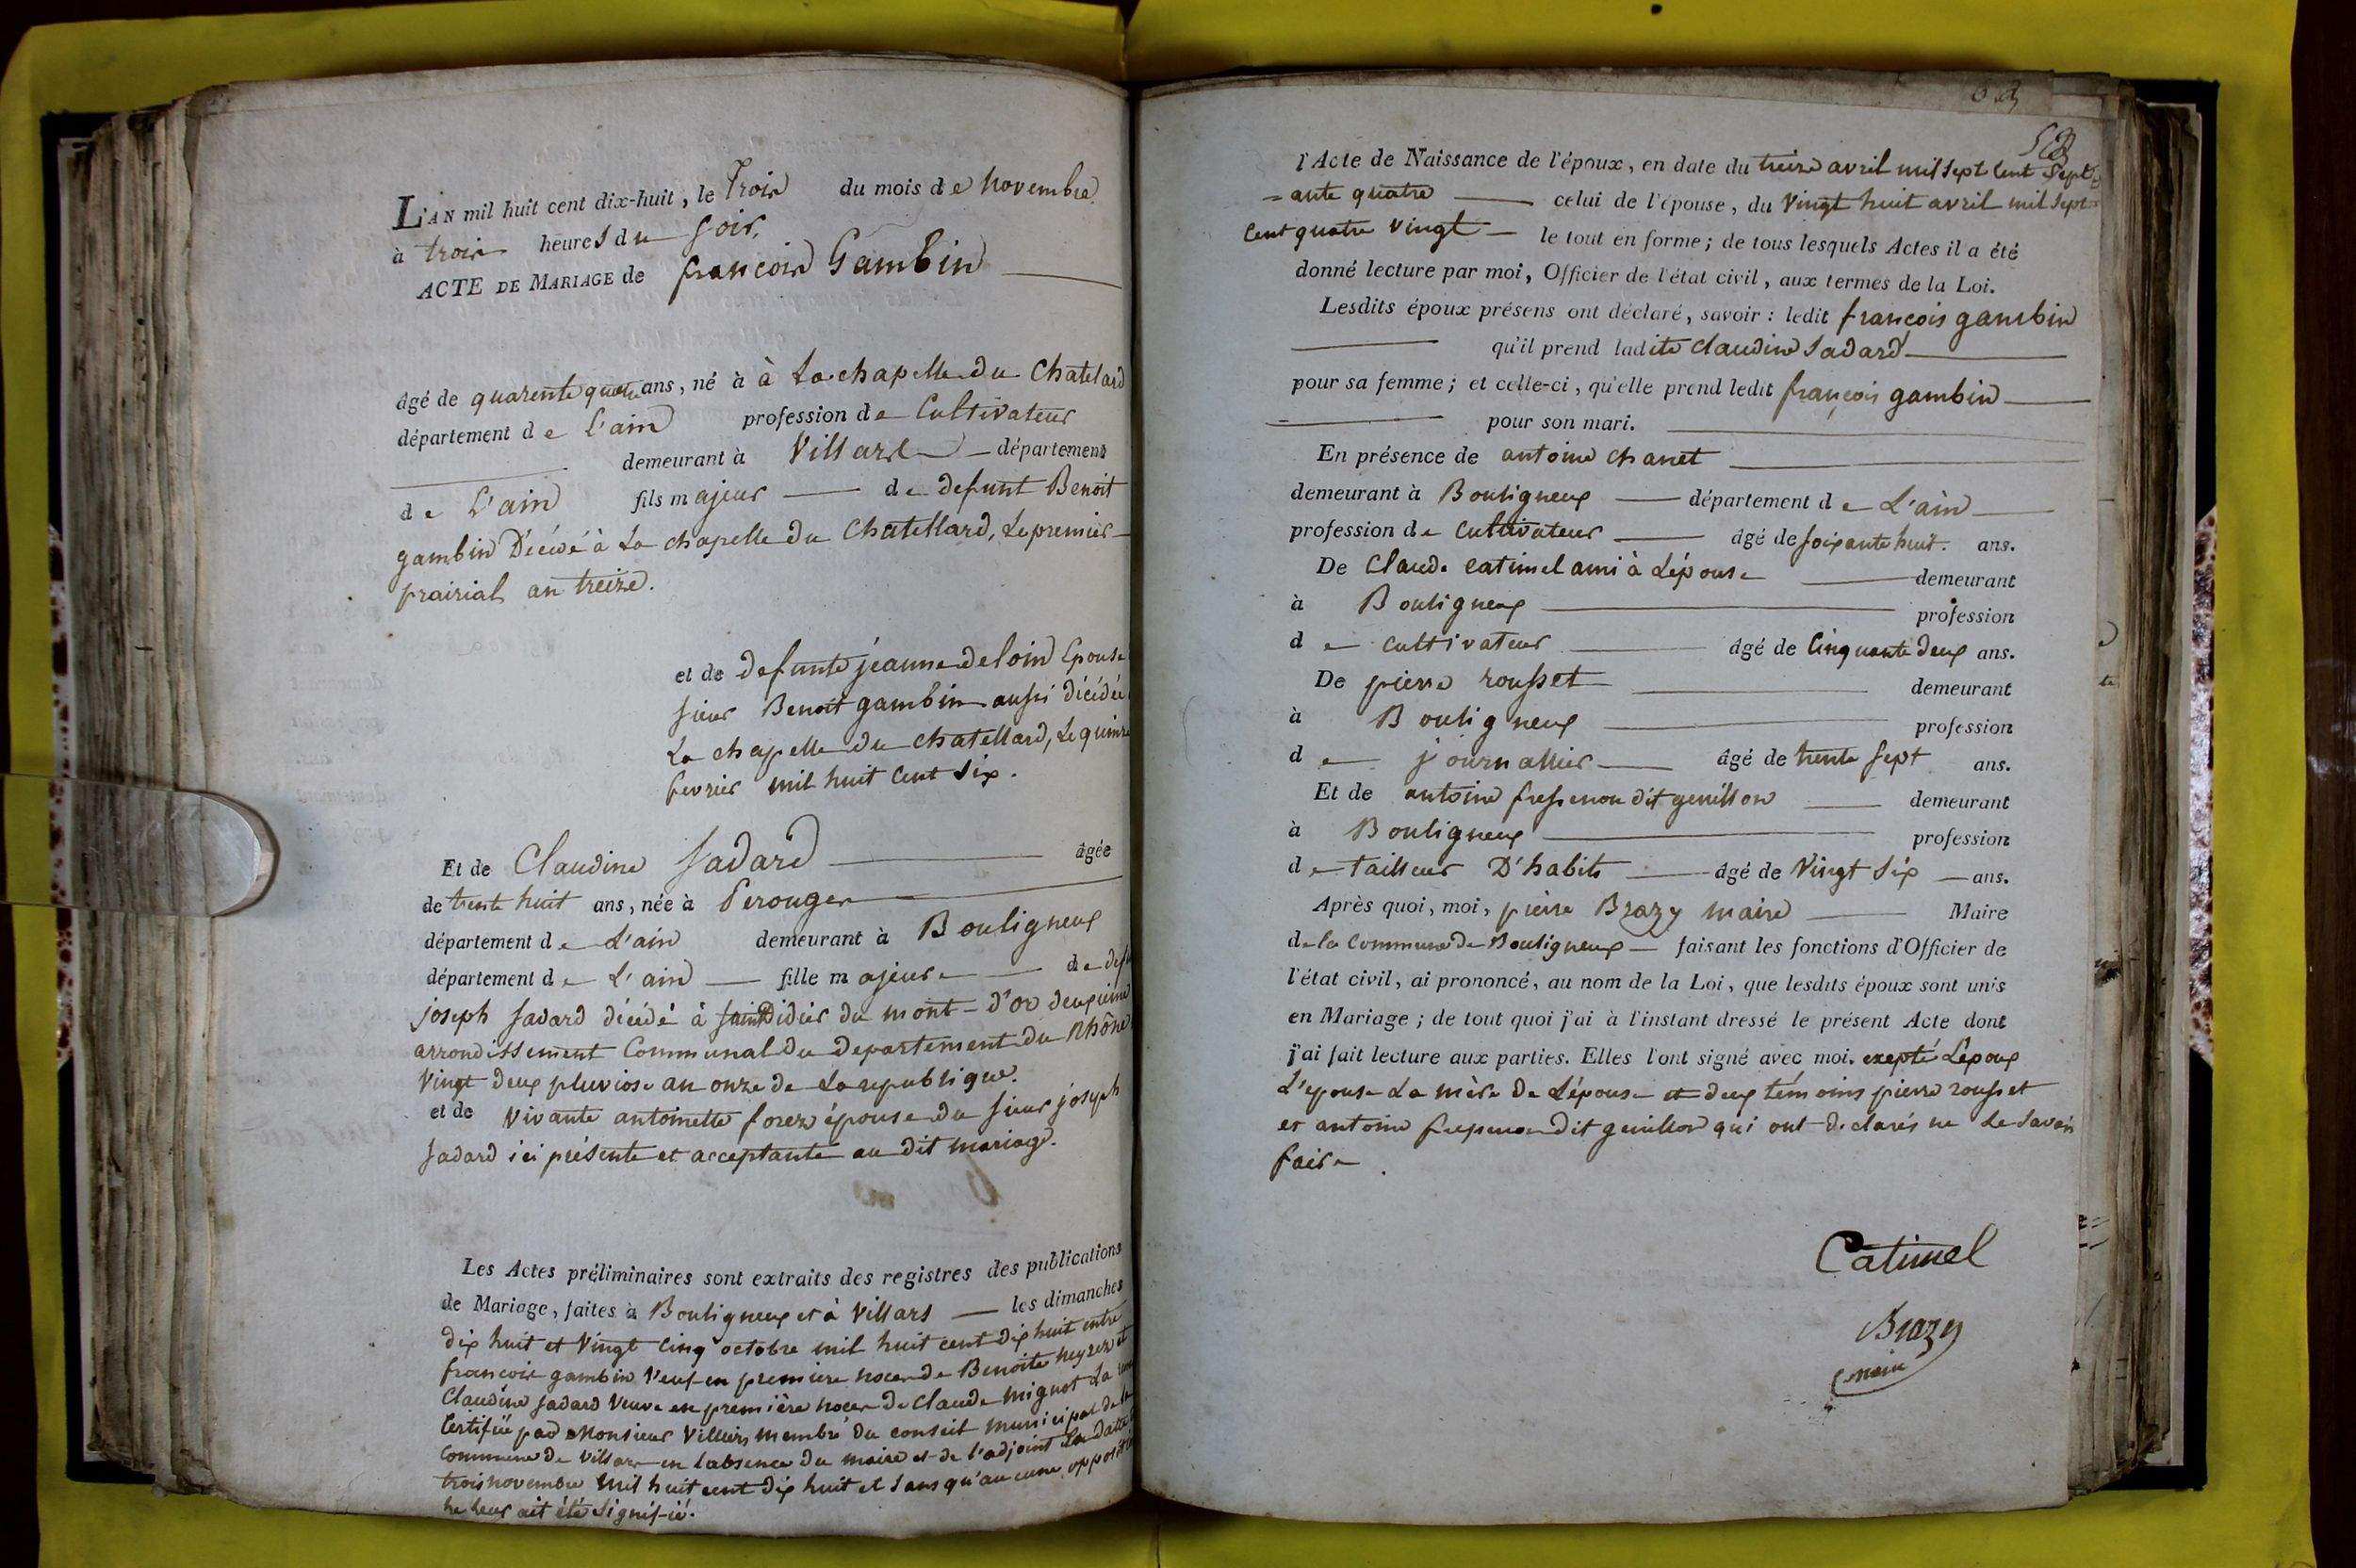 L'AN mil huit cent dix-huit, le Trois du mois de novembre
à trois heures du soir,
ACTE DE MARIAGE de françois Gambin
âgé de quarente quatre ans, né à à La chapelle du Chatelard
département de l'ain profession de Cultivateur
demeurant à Villars département
de L'ain fils majeur de defunt Benoit
gambin Décédé à La chapelle du Chatellard, Le premier
prairial an treize.
et de defunte jeanne deloin Epouse
sieur Benoit gambin aussi décédée
La chapelle du chatellard, Le quinze
fevrier mil huit Cent Six.
Et de Claudine Sadard âgée
de trente huit ans, née à Perouges
département de L'ain demeurant à Bouligneux
département de L'ain fille majeure de
joseph Sadard décédé à saint Didier du mont-d'or deuxième
arrondissement Communal du departement du Rhône
Vingt deux pluviose an onze de La republique.
et de Vivante antoinette forez épouse du sieur joseph
Sadard ici présente et acceptante au dit mariage.
Les Actes préliminaires sont extraits des registres des publications
de Mariage, faites à Bouligneux et à Villars les dimanches
dix huit et Vingt Cinq octobre mil huit cent dix huit entre
françois gambin Veuf en premiere noces de Benoite neyrez et
Claudine Sadard Veuve en première noces de Claude Mignot La
Certifiée par Monsieur Villers membre du conseil municipal de la
Commune de Villars en labsence du maire et de l'adjoint La datte
trois novembre mil huit cent dix huit et sans qu'aucune opposition
ne leur ait été signifié.
53
l'Acte de Naissance de l'époux, en date du treize avril mil sept Cent Sept
=ante quatre celui de l'épouse, du Vingt huit avril mil sept
Cent quatre Vingt le tout en forme; de tous lesquels Actes il a été
donné lecture par moi, Officier de l'état civil, aux termes de la Loi.
Lesdits époux présens ont déclaré, savoir: ledit françois gambin
qu'il prend ladite Claudine Sadard
pour sa femme; et celle-ci, qu'elle prend ledit françois gambin
pour son mari.
En présence de antoine chanet
demeurant à Bouligneux département de L'ain
profession de Cultivateur âgé de soixante huit. ans.
De Claude Catimel ami à Lépouse demeurant
à Bouligneux profession
de Cultivateur âgé de Cinquante deux ans.
De pierre rousset demeurant
à Bouligneux profession
de journallier âgé de trente sept ans.
Et de antoine dit genillon demeurant
à Bouligneux profession
de tailleur D'habits âgé de Vingt Six ans.
Après quoi, moi, pierre Brazy maire Maire
de la Commune de Bouligneux faisant les fonctions d'Officier de
l'état civil, ai prononcé, au nom de la Loi, que lesdits époux sont unis
en Mariage; de tout quoi j'ai à l'instant dressé le présent Acte dont
j'ai fait lecture aux parties. Elles l'ont signé avec moi. exepté L'epoux
L'epouse La mère de Lépouse et deux témoins pierre rousset
et antoine dit genillon qui ont declarés ne Le savoir
faire.
Catimel
Brazy
maire